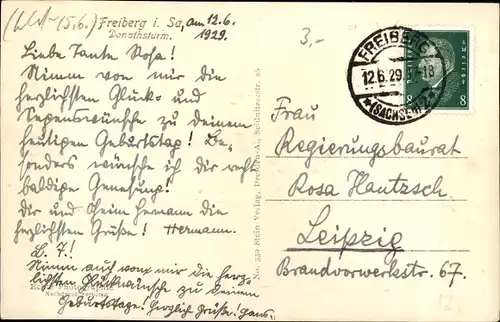 (15.6.) Freiberg i. Sa., am 12.6.
Donathsturm. 1929.
3,-
Liebe Tante Rosa!
Nimm von mir die
herzlichsten Glück- und
Segenswünsche zu deinem
heutigen Geburtstag! Be-
sonders wünsche ich dir recht
baldige Genesung!
Dir und Oheim Hermann die
herzlichsten Grüße! Hermann.
Nimm auch von mir die herz-
lichsten Glückwünsche zu deinem
Geburtstage! Herzlich grüßt Hans.
Echte Photographie
Nachdruck verboten
No. 230 Stein-Verlag, Dresden-A., Seidnitzerstr. 26
FREIBERG
12.6.29.17-18
(SACHSEN) 2
8 8
Frau
Regierungsbaurat
Rosa Hantzsch
Leipzig
Brandvorwerkstr. 67.